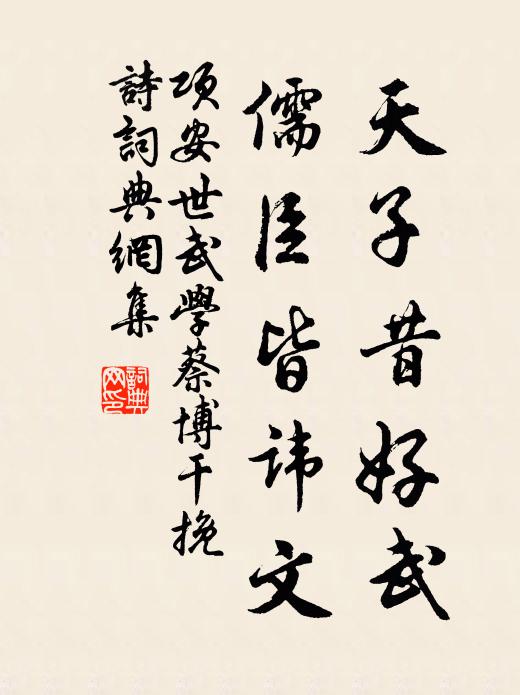 天子昔好武
儒臣皆讳文
项安世武學蔡博干挽
詩詞典網集
詞典網印